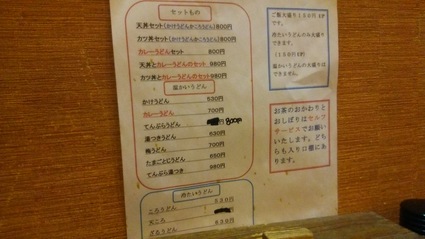 セットもの
天丼セット(かけうどんかころうどん)800円
カツ丼セット(かけうどんかころうどん)800円
カレーうどんセット 800円
天丼とカレーうどんのセット 980円
カツ丼とカレーうどんのセット 980円
温かいうどん
かけうどん 530円
カレーうどん 700円
てんぷらうどん 800円
湯つきうどん 530円
梅うどん 700円
たまごとじうどん 650円
てんぷら湯つき 980円
冷たいうどん
ころうどん 530円
天ころ
ざるうどん 530円
ご飯大盛り150円UP
冷たいうどんのみ大盛り
できます。
(150円UP)
温かいうどんの大盛りは
できません。
お茶のおかわりと
おしぼりはセルフ
サービスでお願い
いたします。どち
らも入り口横にあ
ります。